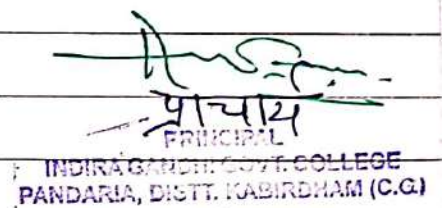 प्राचार्य
PRINCIPAL
INDIRA GANDHI GOVT. COLLEGE
PANDARIA, DISTT. KABIRDHAM (C.G.)